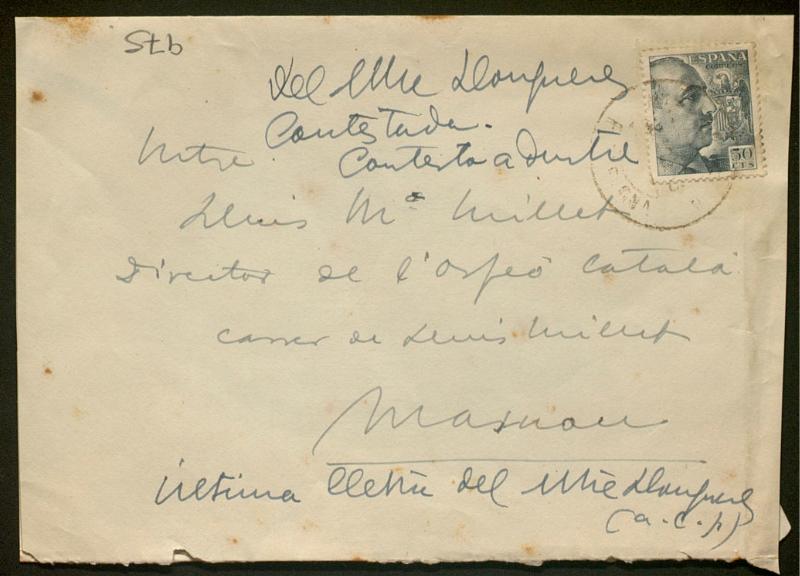 Stb
Del Mtre Llongueres
Contestada.
Contesta a dintre
Mtre.
Lluis Mª Millet
Director de l'Orfeó Català
carrer de Lluis Millet
Masnou
Última lletra del Mtre Llongueres
(a.c.p)
ESPAÑA
CORREOS
50
CTS